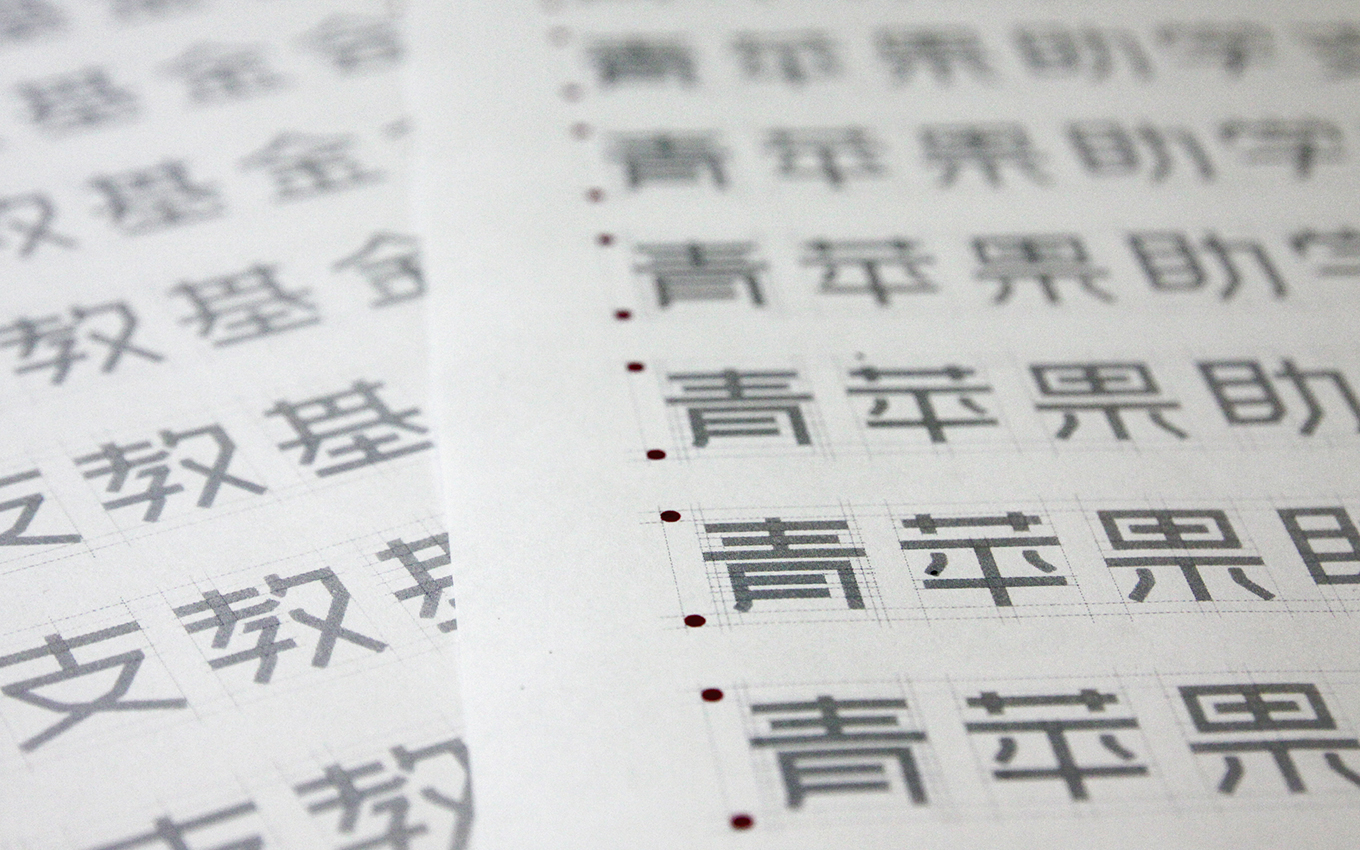 基金会
教基金
教基金
支教基
支教基
支教
青苹果助学
青苹果助学
青苹果助学
青苹果助
青苹果助
青苹果